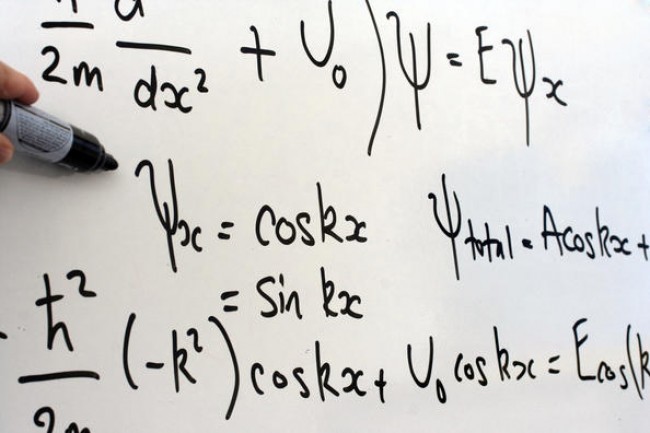 2m dx² + U₀) ψ = Eψₓ
ψₓ = coskx ψtotal = Acoskx +
= sin kx
- ħ² (-k²) coskx + U₀ coskx = Ecos(k
2m